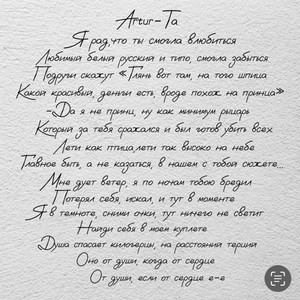 Artur-Ta
Я рад,что ты смогла влюбиться
Любимый белый русский и типо, смогла забыться
Подруги скажут «Глянь вот там, на того шпица
Какой красивый, деньги есть, вроде похож на принца»
-Да я не принц, ну как минимум рыцарь
Который за тебя сражался и был готов убить всех
Лети как птица,лети так высоко на небе
Главное быть, а не казаться, в нашем с тобой сюжете...
Мне дует ветер, я по ночам тобою бредил
Потерял себя, искал, и тут в моменте
Я в темноте, сними очки, тут ничего не светит
Найди себя в моем куплете
Душа спасает килогерцы, на расстоянии терции
Оно от души, когда от сердце
От души, если от сердце е-е